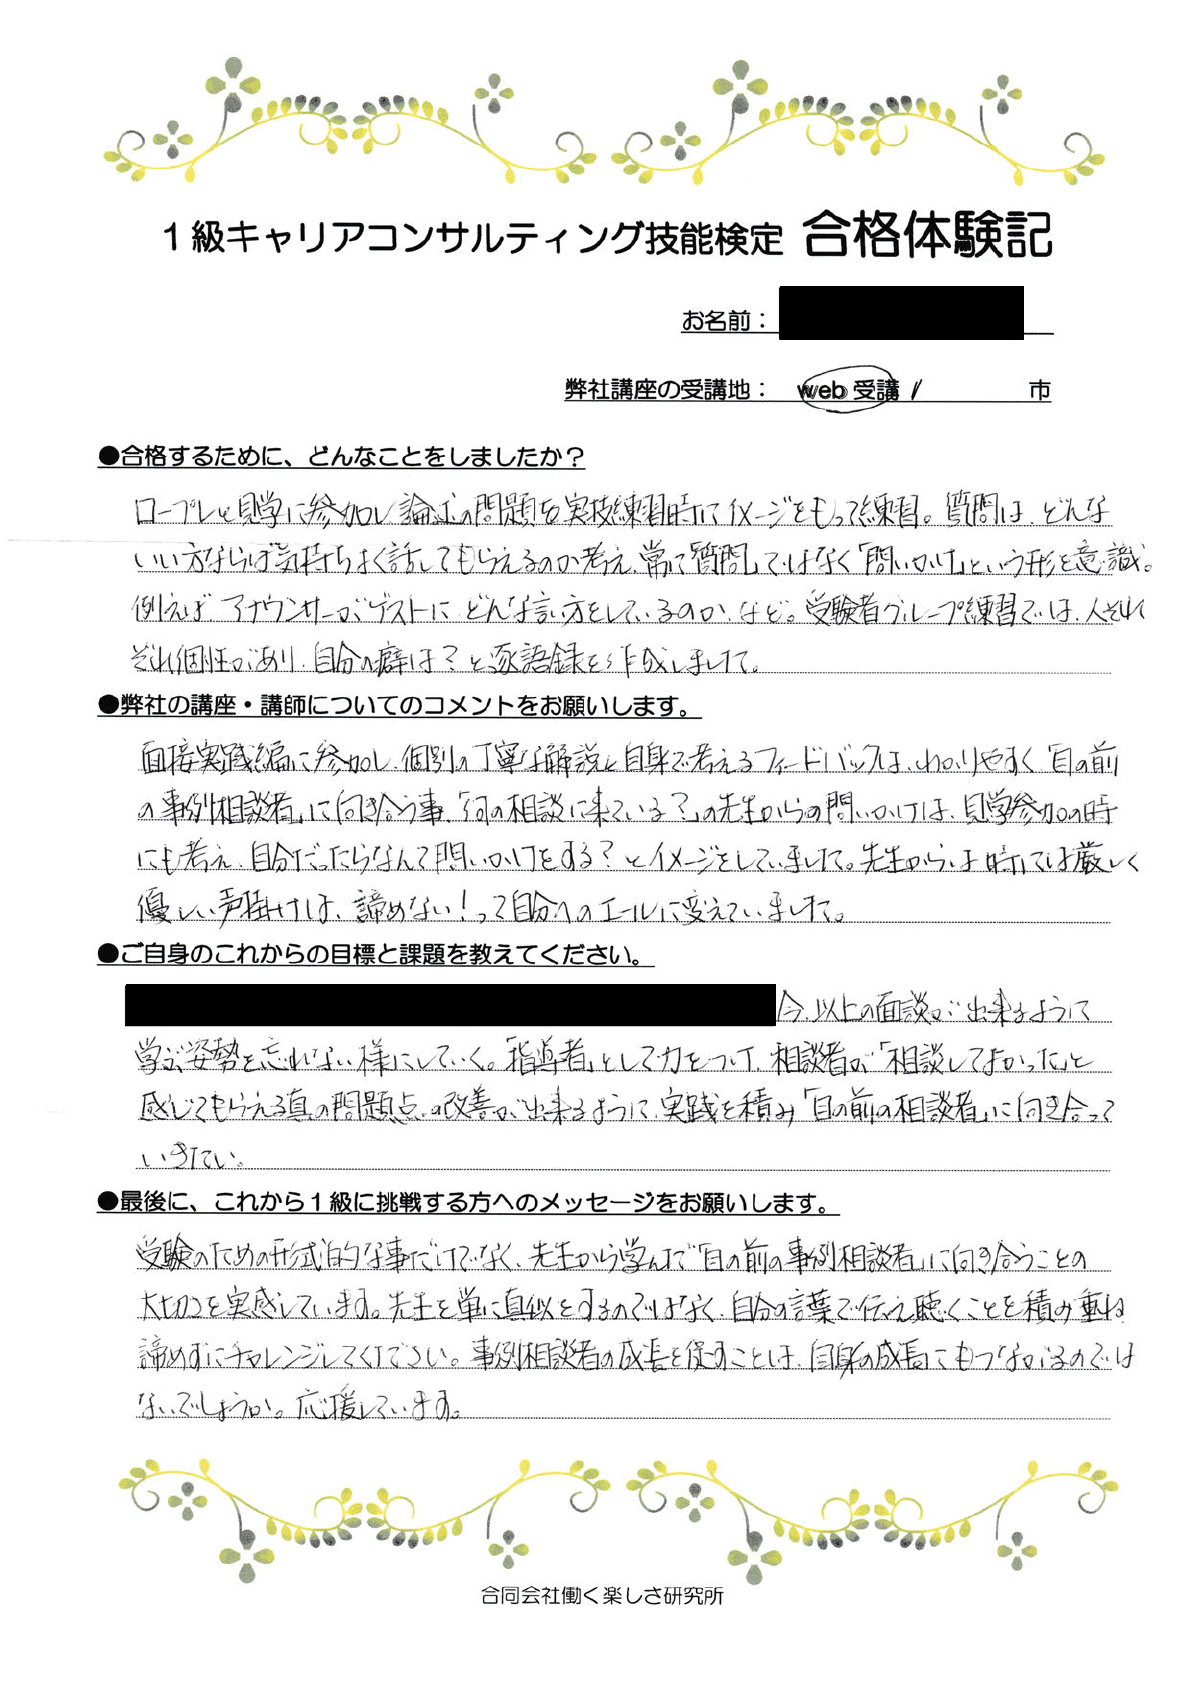 1級キャリアコンサルティング技能検定 合格体験記
お名前：
弊社講座の受講地： web受講 / 市
●合格するために、どんなことをしましたか？
ロープレと見学に参加し論述の問題を実技練習時にイメージをもって練習。質問は、どんな
いい方ならば気持ちよく話してもらえるのか考え、常に「質問」ではなく「問いかけ」という形を意識。
例えば アナウンサーがゲストに どんな言い方をしているのか、など。受験者グループ練習では、人それ
ぞれ個性があり、自分の癖は？と逐語録を作成しました。
●弊社の講座・講師についてのコメントをお願いします。
面接実践編に参加し、個別の丁寧な解説と自身で考えるフィードバックは、わかりやすく「目の前
の事例相談者」に向き合う事、「何の相談に来ている？」の先生からの問いかけは、見学参加の時
にも考え、自分だったらなんて問いかけをする？とイメージをしていました。先生からは時には厳しく
優しい声掛けは、諦めない！って自分へのエールに変えていました。
●ご自身のこれからの目標と課題を教えてください。
今以上の面談が出来るように
学ぶ姿勢を忘れない様にしていく。「指導者」として力をつけ、相談者が「相談してよかった」と
感じてもらえる真の問題点の改善が出来るように、実践を積み「目の前の相談者」に向き合って
いきたい。
●最後に、これから1級に挑戦する方へのメッセージをお願いします。
受験のための形式的な事だけでなく、先生から学んだ「目の前の事例相談者」に向き合うことの
大切さを実感しています。先生を単に真似をするのではなく、自分の言葉で伝え聴くことを積み重ね
諦めずにチャレンジしてください。事例相談者の成長を促すことは、自身の成長にもつながるのでは
ないでしょうか。応援しています。
合同会社働く楽しさ研究所